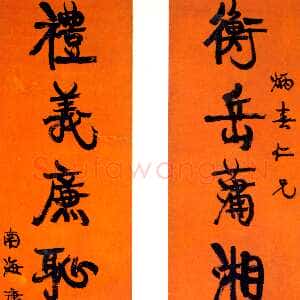 炳春仁兄
衡岳蕭湘
禮義廉恥
南海康